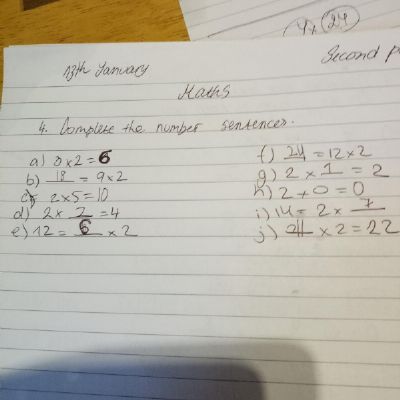 13th January
Second
Maths
4. Complete the number sentences.
a) x2=6
b) 18 = 9x2
c) 2x5=10
d) 2x 2 =4
e) 12= 6 x2
f) 24 =12x2
g) 2 x 1 = 2
h) 2 + 0 = 0
i) 14= 2 x 7
j) x 2 = 22